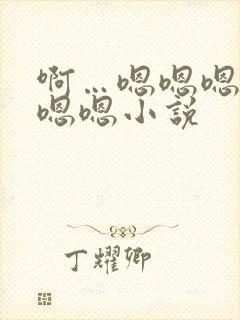 啊…嗯嗯嗯
嗯嗯小说
丁耀卿